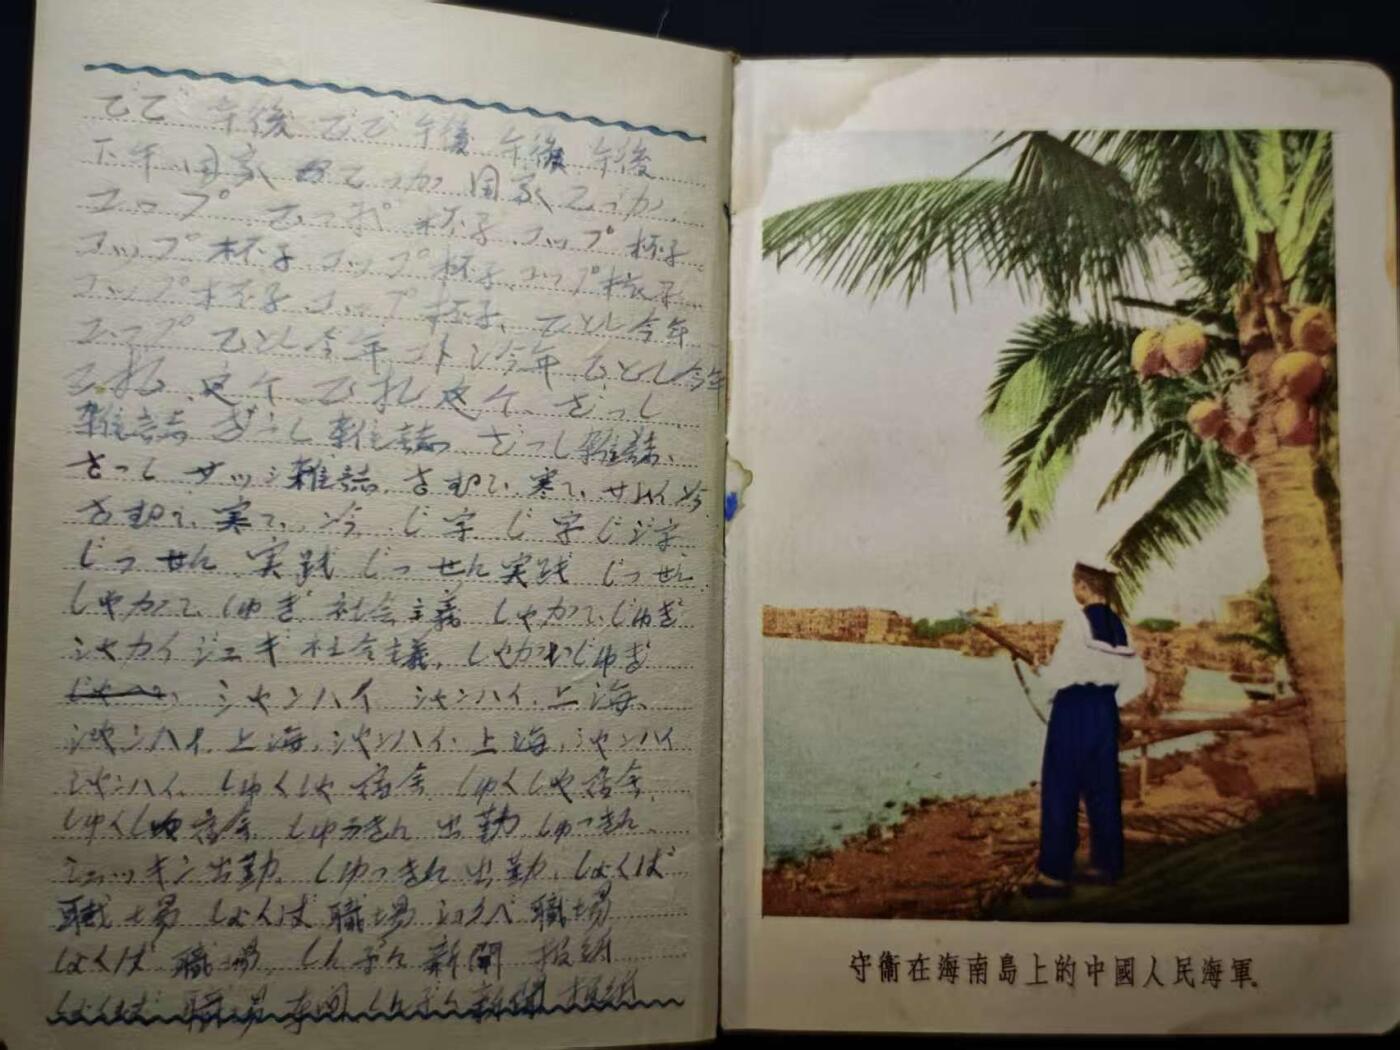 ごご 午後 ごご 午後 午後 午後
下午 国家 こっか 国家 こっか
コップ こっぷ 杯子 コップ 杯子
コップ 杯子 コップ 杯子、コップ 杯子
コップ 杯子 コップ 杯子、ことし 今年
コップ ことし 今年 コトシ 今年 ことし 今年
これ 这个 これ 这个、ざっし
雑誌 ざっし 雑誌、ざっし 雑誌、
ざっし ザッシ 雑誌、さむて、寒て、サムイ 冷
さむて、寒て、冷 じ 字 じ 字 じ ジ 字
じっせん 実践 じっせん 実践 じっせん
しゃかて、しゅぎ 社会主義 しゃかて、じゅぎ
シャカイジュギ 社会主義、しゃかいじゅぎ
シャンハイ シャンハイ、上海、
シャンハイ、上海、シャンハイ、上海、シャンハイ
シャンハイ、しゅくしゃ 宿舎 しゅくしゃ 宿舎、
しゅくしゃ 宿舎 しゅっきん 出勤 しゅっきん、
シュッキン 出勤、しゅっきん 出勤、しょくば
職場 しょくば 職場 職場
しょくば 職場、しんぶん 新聞 报纸
しょくば 職場 车间 しんぶん 新聞 报纸
守衞在海南島上的中國人民海軍。